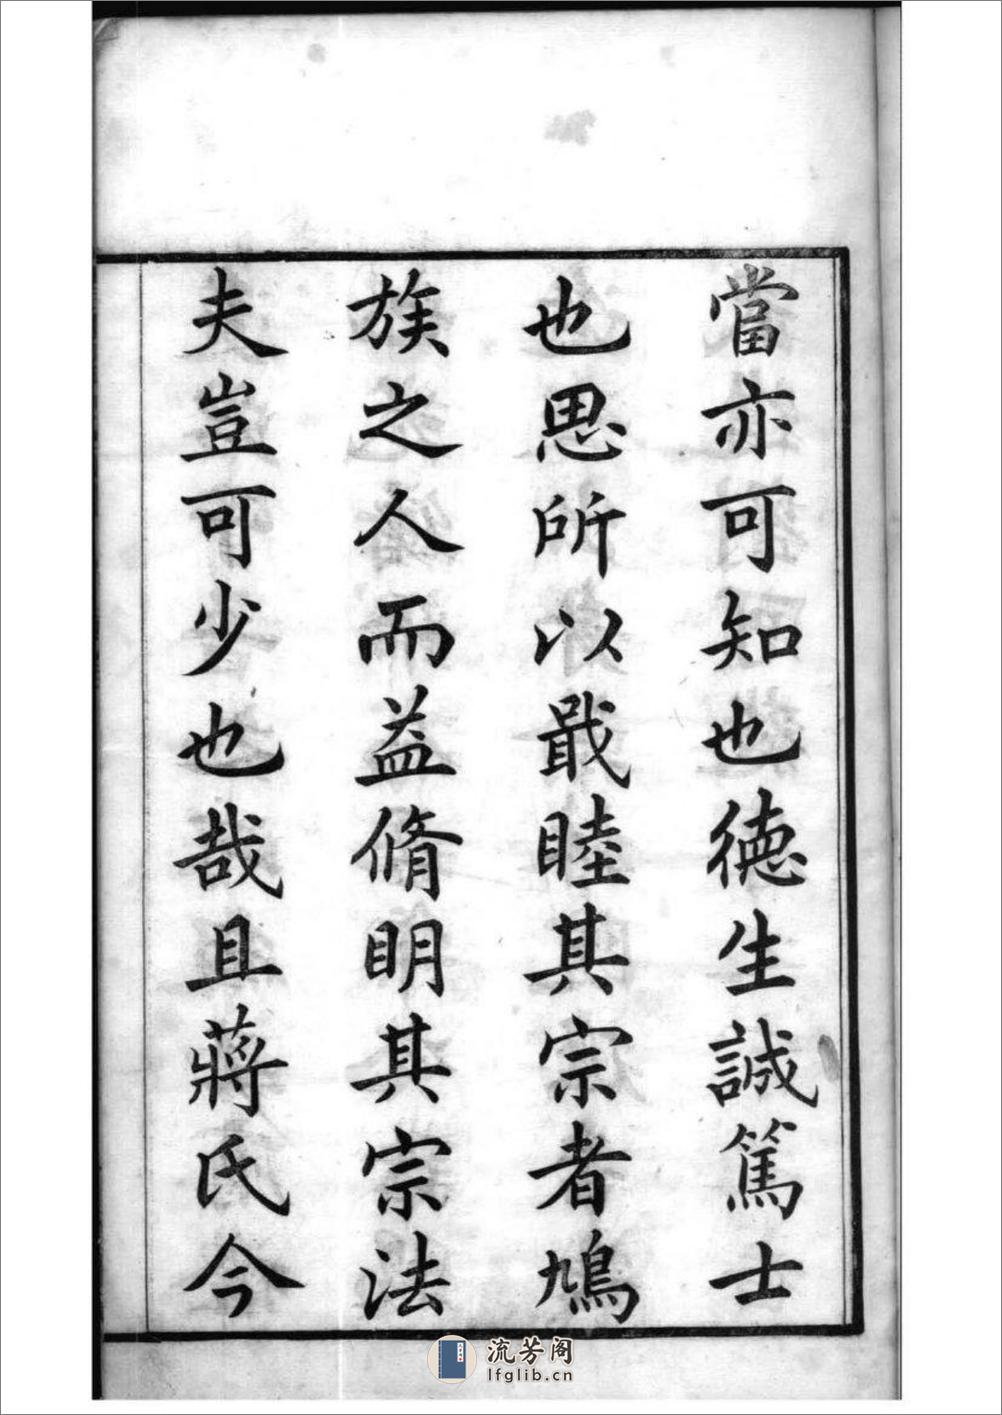 當亦可知也德生誠篤士
也思所以戢睦其宗者鳩
族之人而益脩明其宗法
夫豈可少也哉且蔣氏今
流芳阁
lfglib.cn